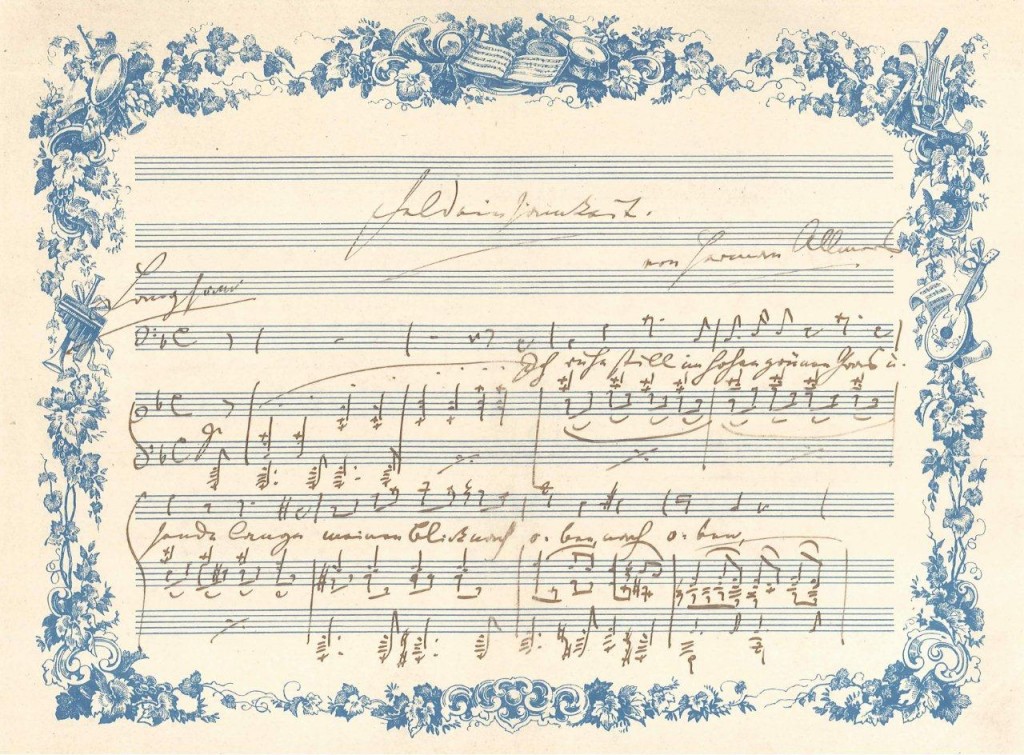 Feldeinsamkeit.
von Herman Allmers
Langsam
Ich ruhe still im hohen grünen Gras u.
sende lange meinen Blick nach o-ben, nach o-ben,